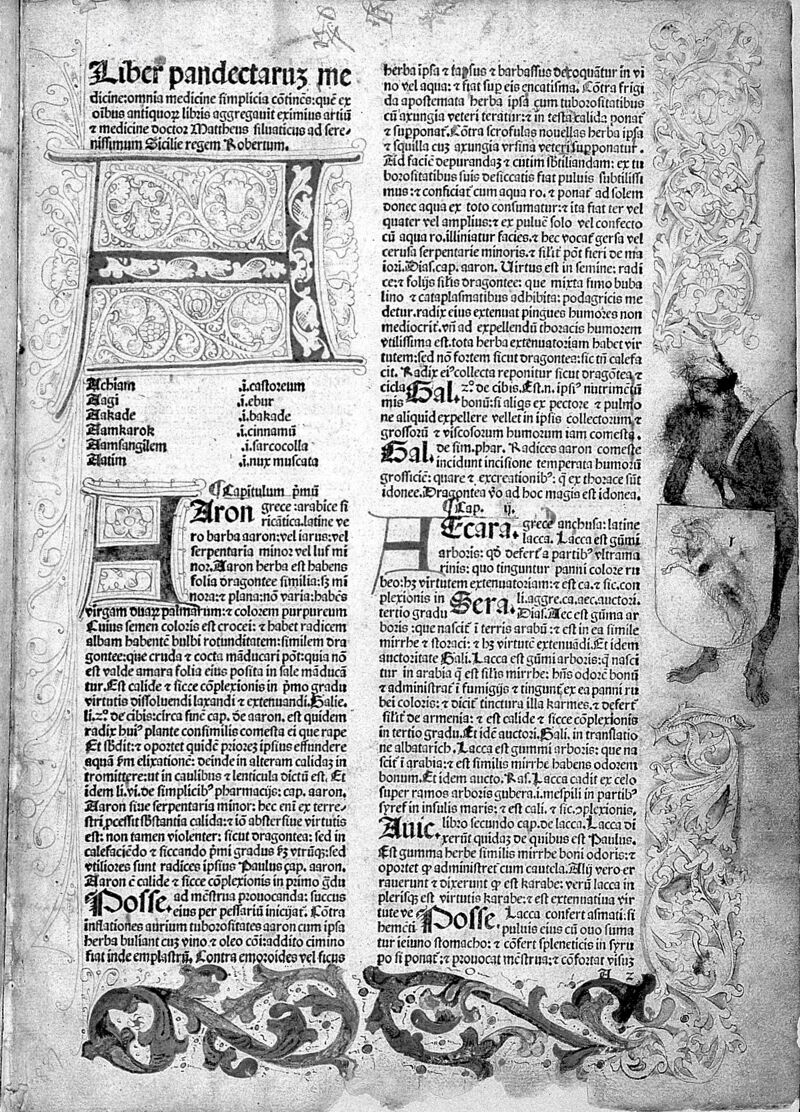 Liber pandectaruʒ me
dicine:omnia medicine simplicia cōtinēs:quē ex
oībus antiquoꝝ libris aggregauit eximius artiū
⁊ medicine doctor Mattheus siluaticus ad sere-
nissimum Sicilie regem Robertum.
A
Achiam .i.castoreum
Aagi .i.ebur
Aakade .i.bakade
Aamkarok .i.cinnamū
Aamsangilem .i.sarcocolla
Aatim .i.nux muscata
¶ Capitulum pꝛmū
AAron grece:arabice si
ricatica.latine ve
ro barba aaron:vel iarus:vel
serpentaria minor vel luf mi
nor.Aaron herba est habens
folia dragontee similia:sʒ mi
nora:⁊ plana:nō varia:habēs
virgam duaꝝ palmarum:⁊ colorem purpureum
Cuius semen coloris est crocei:⁊ habet radicem
albam habentē bulbi rotunditatem:similem dra
gontee:que cruda ⁊ cocta māducari pōt:quia nō
est valde amara folia eius posita in sale māducā
tur.Est calide ⁊ sicce cōplexionis in pꝛmo gradu
virtutis dissoluendi laxandi ⁊ extenuandi.Galie.
li.ʒº.de cibis:circa finē cap.de aaron.est quidem
radix huiꝰ plante consimilis comesta ei que rape
Et sbdit:⁊ oportet quidē priores ipsius effundere
aquā pꝛm elixationē:deinde in alteram calidaʒ in
tromittere:ut in caulibus ⁊ lenticula dictū est. Et
idem li.vi.de simplicibꝰ pharmacijs:cap. aaron.
Aaron siue serpentaria minor:hec eni ex terre-
stri ꝓcessit sbstantia calida:⁊ iō abstersiue virtutis
est: non tamen violenter: sicut dragontea:sed in
calefaciēdo ⁊ siccando pꝛmi gradus hʒ vtrūqʒ:sed
vtiliores sunt radices ipsius Paulus cap. aaron.
Aaron ē calide ⁊ sicce cōplexionis in primo g̃du
Posse. ad mēstrua prouocanda: succus
eius per pessariū inijciat᷑. Cōtra
inflationes aurium tuborositates aaron cum ipsa
herba buliant cuʒ vino ⁊ oleo cōi:addito cimino
fiat inde emplastrū. Contra emoroides vel ficus
herba ipsa ⁊ tapsus ⁊ barbassus decoquātur in vi
no vel aqua:⁊ fiat suꝑ eis encatisma. Cōtra frigi
da apostemata herba ipsa cum tuborositatibus
cū axungia veteri teratur:⁊ in testa calida ponat᷑
⁊ supponat᷑.Cōtra scrofulas nouellas herba ipsa
⁊ squilla cuʒ axungia vrsina veteri supponatur.
Ad faciē depurandaʒ ⁊ cutim sbtiliandam: ex tu
borositatibus suis desiccatis fiat puluis subtilissi
mus:⁊ conficiat᷑ cum aqua ro. ⁊ ponat᷑ ad solem
donec aqua ex toto consumatur:⁊ ita fiat ter vel
quater vel amplius:⁊ ex puluē solo vel confecto
cū aqua ro.illiniatur facies.⁊ hec vocat᷑ gersa vel
cerusa serpentarie minoris.⁊ silit᷑ pōt fieri de ma
iori.Dias.cap. aaron. Uirtus est in semine: radi
ce:⁊ folijs silis dragontee: que mixta fimo buba
lino ⁊ cataplasmatibus adhibita: podagricis me
detur.radix eius extenuat pingues humores non
mediocrit᷑.vñ ad expellendū thoracis humorem
vtilissima est.tota herba extenuatoriam habet vir
tutem:sed nō fortem sicut dragontea:sic tñ calefa
cit. Radix eiꝰ collecta reponitur sicut dragōtea ⁊
cicla mis Gal. ʒº. de cibis. Est.n. ipsiꝰ nutrimētū
bonū:si aliqs ex pectore ⁊ pulmo
ne aliquid expellere vellet in ipsis collectorum ⁊
grossorū ⁊ viscosorum humorum iam comesta.
Gal. de sim.phar. Radices aaron comeste
incidunt incisione temperata humorū
grossiciē: quare ⁊ excreationibꝰ: q̄ ex thorace sūt
idonee.Dragontea vo ad hoc magis est idonea.
¶ Cap. ij.
AAcara. grece anchusa: latine
lacca. Lacca est gūmi
arboris: qd̄ defert᷑ a partibꝰ vltrama
rinis: quo tinguntur panni colore ru
beo:hʒ virtutem extenuatoriam:⁊ est ca.⁊ sic.con
plexionis in Sera. li.aggre.ca.aec.auctori.
tertio gradu Dias.Aec est gūma ar
boris :que nascit᷑ ī terris arabū:⁊ est in ea simile
mirrhe ⁊ storaci: ⁊ hʒ virtutē extenuādi.Et idem
auctoritate Gali. Lacca est gūmi arboris:q̄ nasci
tur in arabia q̄ est silis mirrhe: hñs odorē bonū
⁊ administrat᷑ ī fumigijs ⁊ tingunt᷑ ex ea panni ru
bei coloris:⁊ dicit᷑ tinctura illa karmes.⁊ defert᷑
silit᷑ de armenia: ⁊ est calide ⁊ sicce cōplexionis
in tertio gradu.Et idē auctori.Gali. in translatio
ne albatarich. Lacca est gummi arboris: que na
scit᷑ ī arabia:⁊ est similis mirrhe habens odorem
bonum.Et idem aucto. Ras. Lacca cadit ex celo
super ramos arboris gubera.i.mespili in partibꝰ
syref in insulis maris:⁊ est cali. ⁊ sic.ↄplexionis.
Auic. libro secundo cap.de lacca. Lacca di
xerūt quidaʒ de quibus est Paulus.
Est gumma herbe similis mirrhe boni odoris:⁊
oportet ꝙ administret᷑ cum cautela.Alij vero er
rauerunt ⁊ dixerunt ꝙ est karabe: verū lacca in
plerisqʒ est virtutis karabe:⁊ est extenuatiua vir
tute ve Posse. Lacca confert asmati:si
hemēti puluis eius cū ouo suma
tur ieiuno stomacho:⁊ cōfert spleneticis in syru
po si ponat᷑:⁊ prouocat mēstrua:⁊ cōfortat visuʒ
A 2